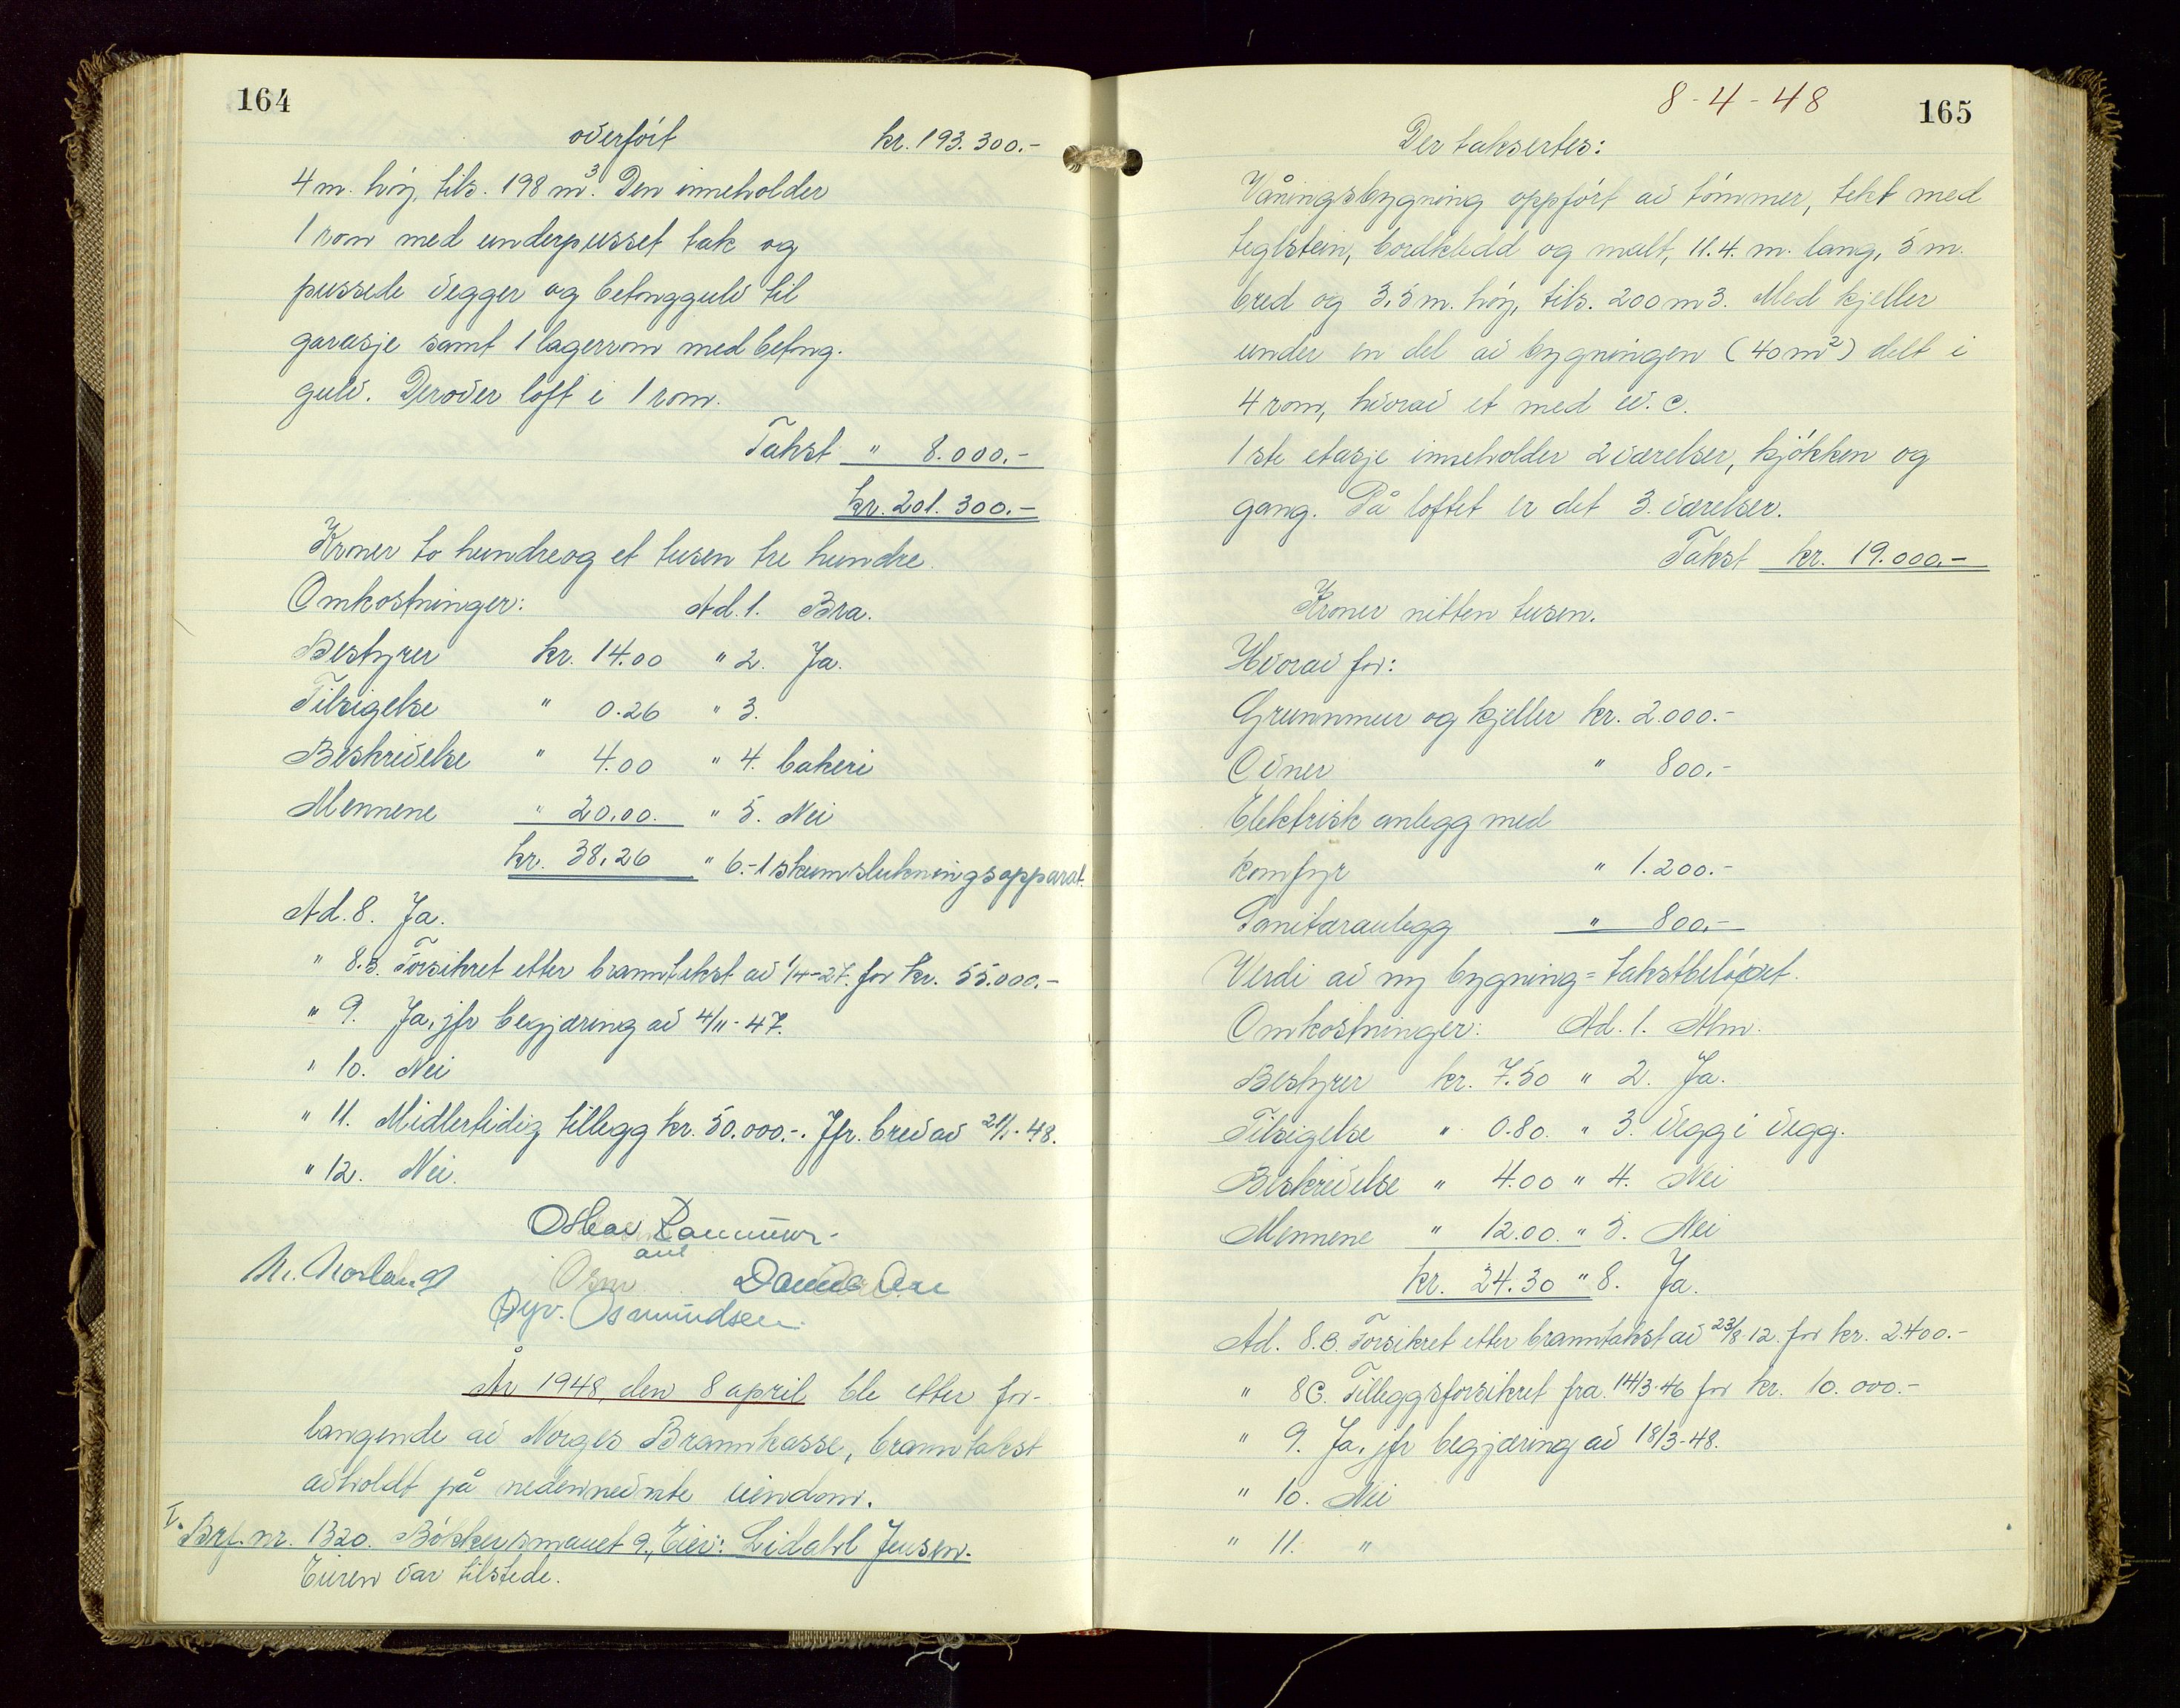 164
overført kr. 193.300.-
4 m. høy, tils. 198 m³. Den inneholder
1 rom med underpusset tak og
pussede vegger og betonggulv til
garasje samt 1 lagerrom med betong-
gulv. Derover loft i 1 rom.
Takst " 8.000.-
kr. 201.300.-
Kroner to hundreog et tusen tre hundre.
Omkostninger: Ad. 1. Bra.
Bestyrer kr. 14.00 " 2. Ja.
Tilsigelse " 0.26 " 3.
Beskrivelse " 4.00 " 4. bakeri
Mennene " 20.00. " 5. Nei
kr. 38.26 " 6.-1 skumslukningsapparat.
Ad. 8. Ja.
" 8.B. Forsikret etter branntakst av 1/4-27. for kr. 55.000.-
" 9. Ja, jfr begjæring av 4/11-47.
" 10. Nei
" 11. Midlertidig tillegg kr. 50.000.-. Jfr. brev av 21/1-48.
" 12. Nei.
Osmundsen
År 1948, den 8 april ble etter for-
langende av Norges Brannkasse, branntakst
avholdt på nedennevnte eiendom.
I. Brf. nr. 1320. Bøkkersmauet 9., Eier: Lidahl Jensen.
Eieren var tilstede.
8-4-48
165
Der taksertes:
Våningsbygning oppført av tømmer, tekt med
teglstein, bordkledd og malt, 11.4. m. lang, 5 m.
bred og 3,5 m. høy, tils. 200 m3. Med kjeller
under en del av bygningen (40 m²) delt i
4 rom, hvorav et med w.c.
1ste etasje inneholder 2 værelser, kjøkken og
gang. På loftet er det 3. værelser.
Takst kr. 19.000.-
Kroner nitten tusen.
Hvorav for:
Grunnmur og kjeller kr. 2.000.-
Ovner " 800.-
Elektrisk anlegg med
komfyr " 1.200.-
Sanitæranlegg " 800.-
Verdi av ny bygning = takstbeløpet.
Omkostninger: Ad. 1. Alm.
Bestyrer kr. 7.50 " 2. Ja.
Tilsigelse " 0.80. " 3. Vegg i vegg.
Beskrivelse " 4.00 " 4. Nei
Mennene " 12.00. " 5. Nei
kr. 24.30 " 8. Ja.
Ad. 8.B. Forsikret etter branntakst av 23/8-12. for kr. 2.400.-
" 8C. Tilleggsforsikret fra 14/3-46 for kr. 10.000.-
" 9. Ja, jfr begjæring av 18/3-48.
" 10. Nei
" 11. "